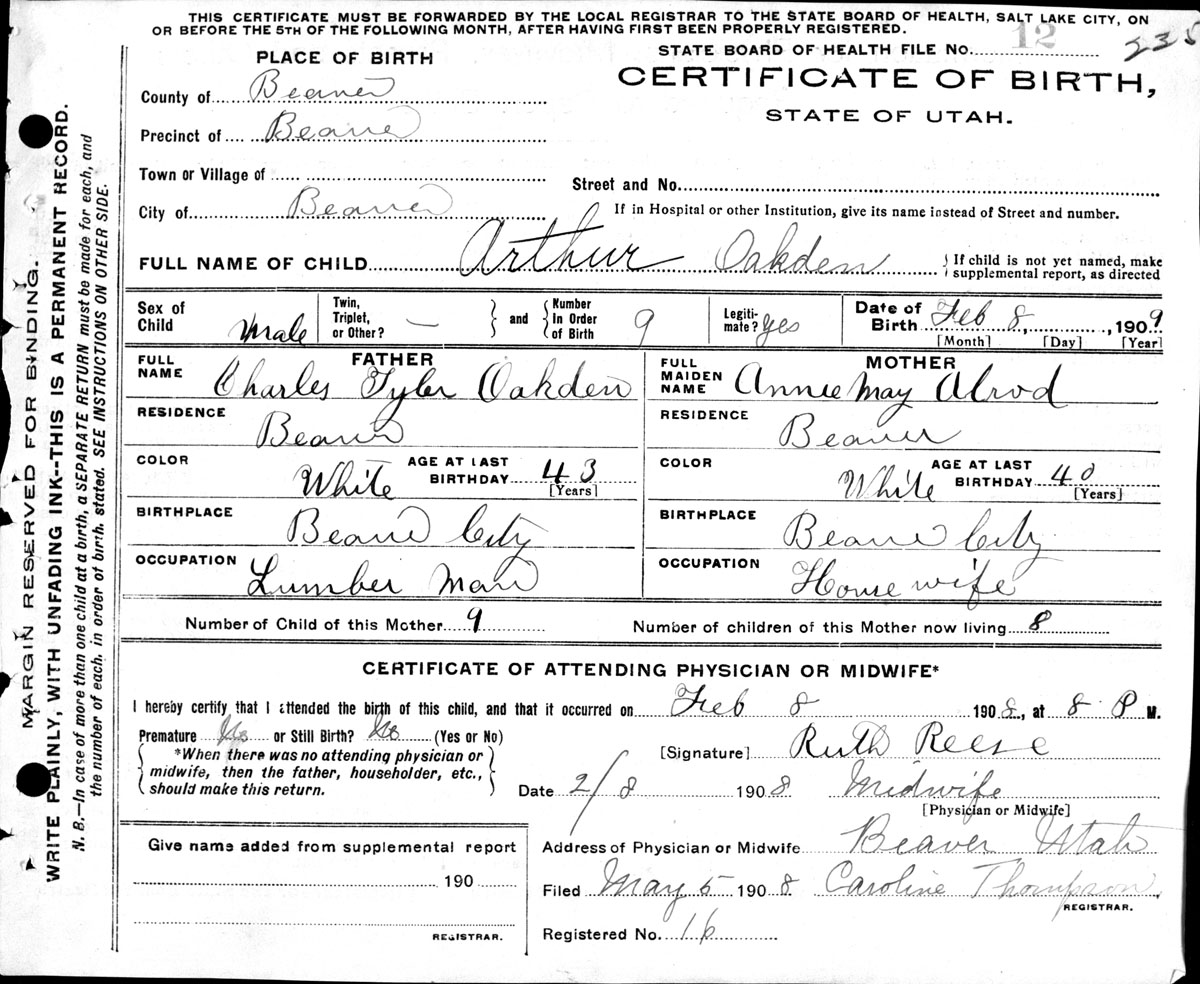 THIS CERTIFICATE MUST BE FORWARDED BY THE LOCAL REGISTRAR TO THE STATE BOARD OF HEALTH, SALT LAKE CITY, ON
OR BEFORE THE 5TH OF THE FOLLOWING MONTH, AFTER HAVING FIRST BEEN PROPERLY REGISTERED.
PLACE OF BIRTH
STATE BOARD OF HEALTH FILE No. 12 235
County of Beaver
CERTIFICATE OF BIRTH,
STATE OF UTAH.
Precinct of Beaver
Town or Village of
Street and No.
City of Beaver
If in Hospital or other Institution, give its name instead of Street and number.
FULL NAME OF CHILD Arthur Oakden
If child is not yet named, make
supplemental report, as directed
Sex of
Child Male
Twin,
Triplet,
or Other? —
and
Number
In Order
of Birth 9
Legiti-
mate? yes
Date of
Birth Feb 8, 1909
[Month] [Day] [Year]
FATHER
FULL
NAME Charles Tyler Oakden
RESIDENCE
Beaver
COLOR
White
AGE AT LAST
BIRTHDAY 43
[Years]
BIRTHPLACE
Beaver City
OCCUPATION
Lumber Man
MOTHER
FULL
MAIDEN
NAME Annie May Alrod
RESIDENCE
Beaver
COLOR
White
AGE AT LAST
BIRTHDAY 40
[Years]
BIRTHPLACE
Beaver City
OCCUPATION
House wife
Number of Child of this Mother 9
Number of children of this Mother now living 8
CERTIFICATE OF ATTENDING PHYSICIAN OR MIDWIFE*
I hereby certify that I attended the birth of this child, and that it occurred on Feb 8 1908, at 8 P M.
Premature No or Still Birth? No (Yes or No)
*When there was no attending physician or
midwife, then the father, householder, etc.,
should make this return.
[Signature] Ruth Reese
Date 2/8 1908 Midwife
[Physician or Midwife]
Give name added from supplemental report
190
REGISTRAR.
Address of Physician or Midwife Beaver Utah
Filed May 5 1908 Caroline Thompson
REGISTRAR.
Registered No. 16
MARGIN RESERVED FOR BINDING.
WRITE PLAINLY, WITH UNFADING INK--THIS IS A PERMANENT RECORD.
N. B.—In case of more than one child at birth, a SEPARATE RETURN must be made for each, and
the number of each, in order of birth, stated. SEE INSTRUCTIONS ON OTHER SIDE.